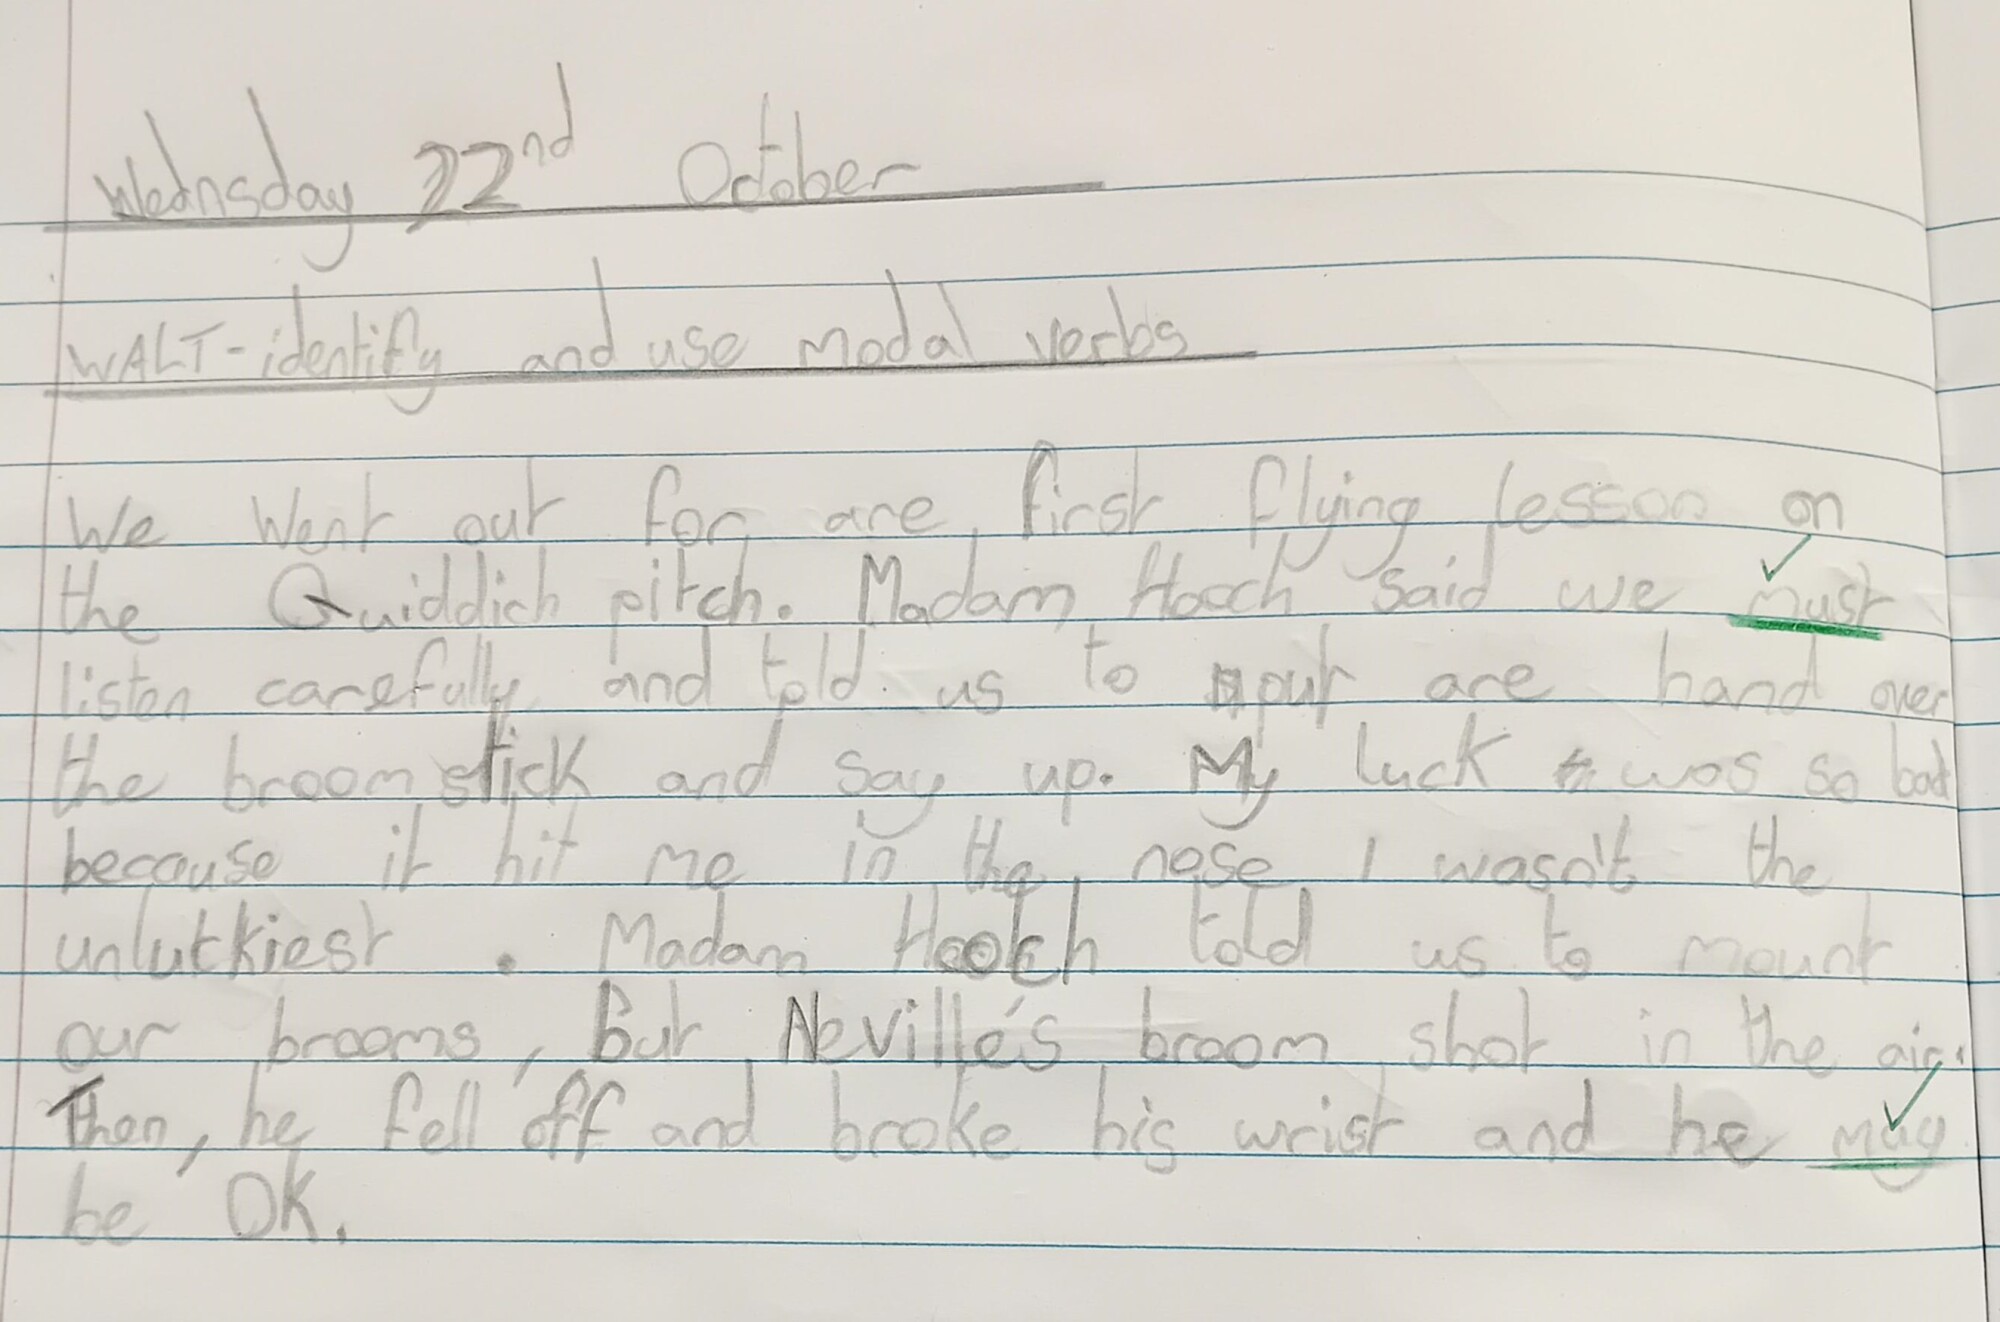 Wednsday 22nd October
WALT-identify and use modal verbs
We went out for are first flying lesson on
the Quiddich pitch. Madam Hooch said we must
listen carefully and told us to put are hand over
the broom stick and say up. My luck was so bad
because it hit me in the nose I wasn't the
unluckiest . Madam Hooch told us to mount
our brooms, But Neville's broom shot in the air.
Then, he fell off and broke his wrist and he may
be OK.